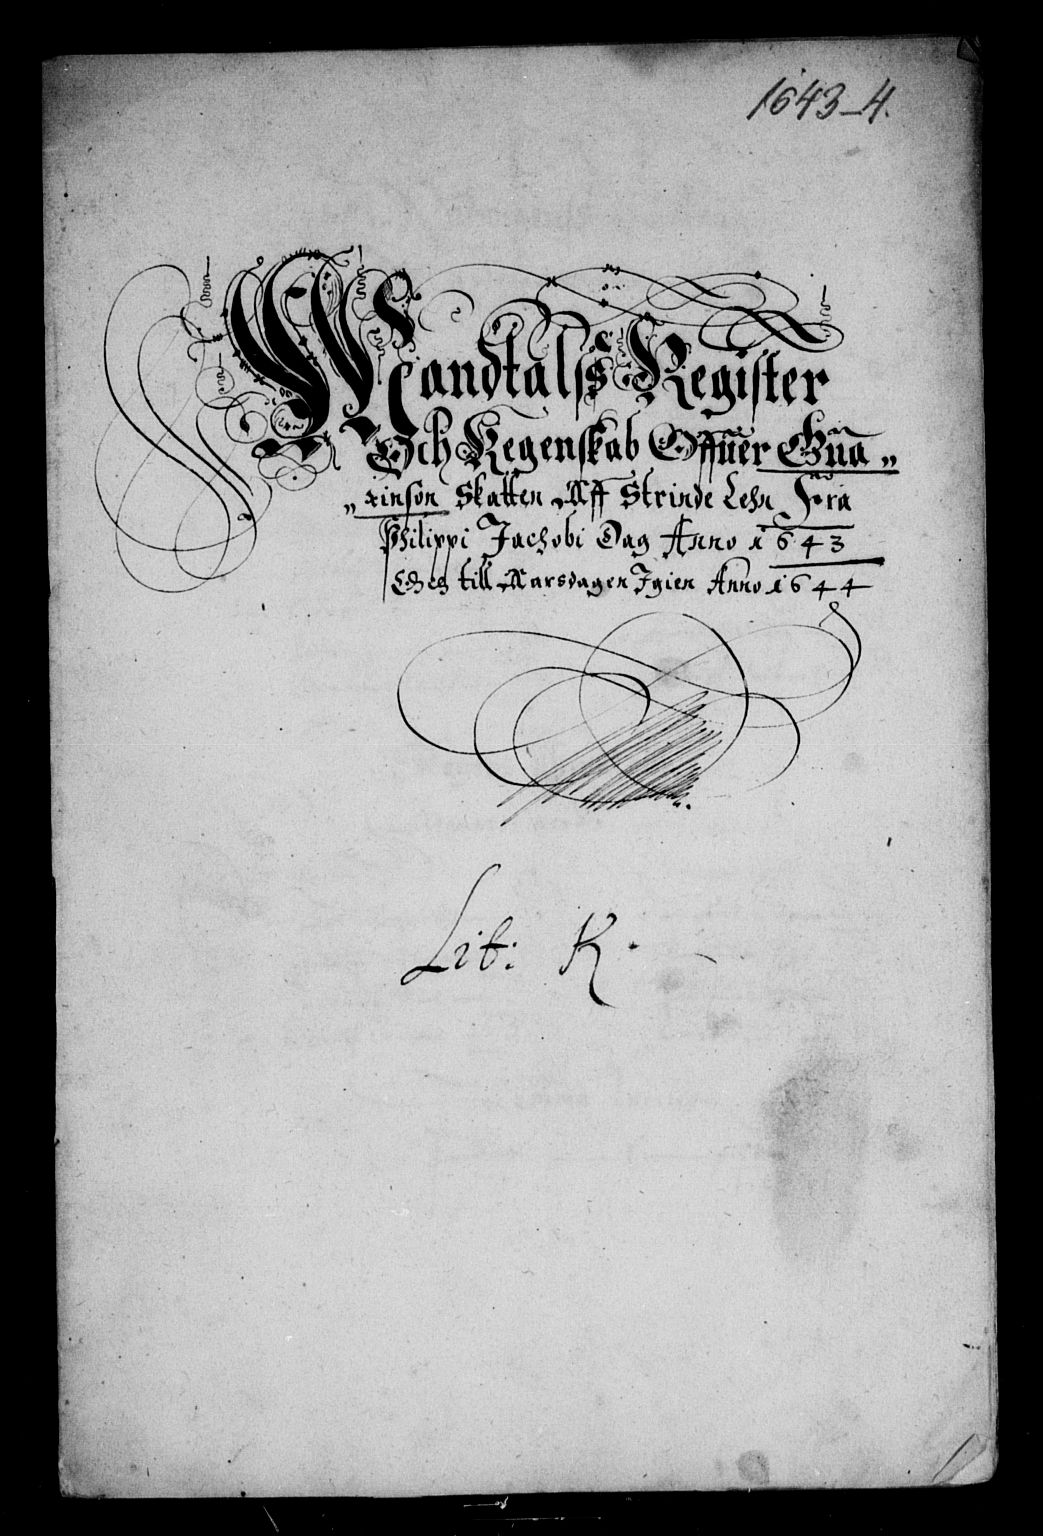 1643-4.
Mandtalss Register
Och Regenskab Offuer Gua„
„xinson Skatten Aff Strinde Lehn Fra
Philippi Jachobi Dag Anno 1643
Och till Aarsdagen Igien Anno 1644
Lit: K.
1